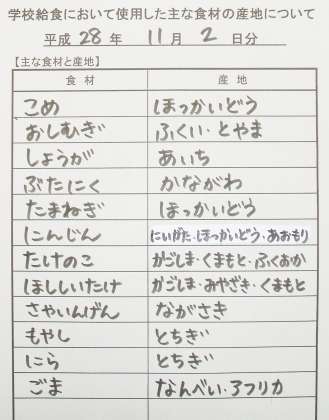 学校給食において使用した主な食材の産地について
平成 28 年 11 月 2 日分
【主な食材と産地】
食材 産地
こめ ほっかいどう
おしむぎ ふくい・とやま
しょうが あいち
ぶたにく かながわ
たまねぎ ほっかいどう
にんじん にいがた・ほっかいどう・あおもり
たけのこ かごしま・くまもと・ふくおか
ほししいたけ かごしま・みやざき・くまもと
さやいんげん ながさき
もやし とちぎ
にら とちぎ
ごま なんべい・アフリカ